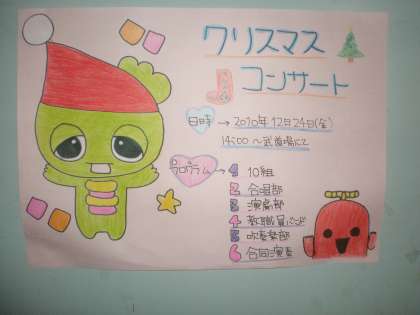 クリスマス
コンサート
日時 → 2010年12月24日(金)
14:00 〜武道場にて
プログラム → 1 10組
2 合唱部
3 演劇部
4 教職員バンド
5 吹奏楽部
6 合同演奏